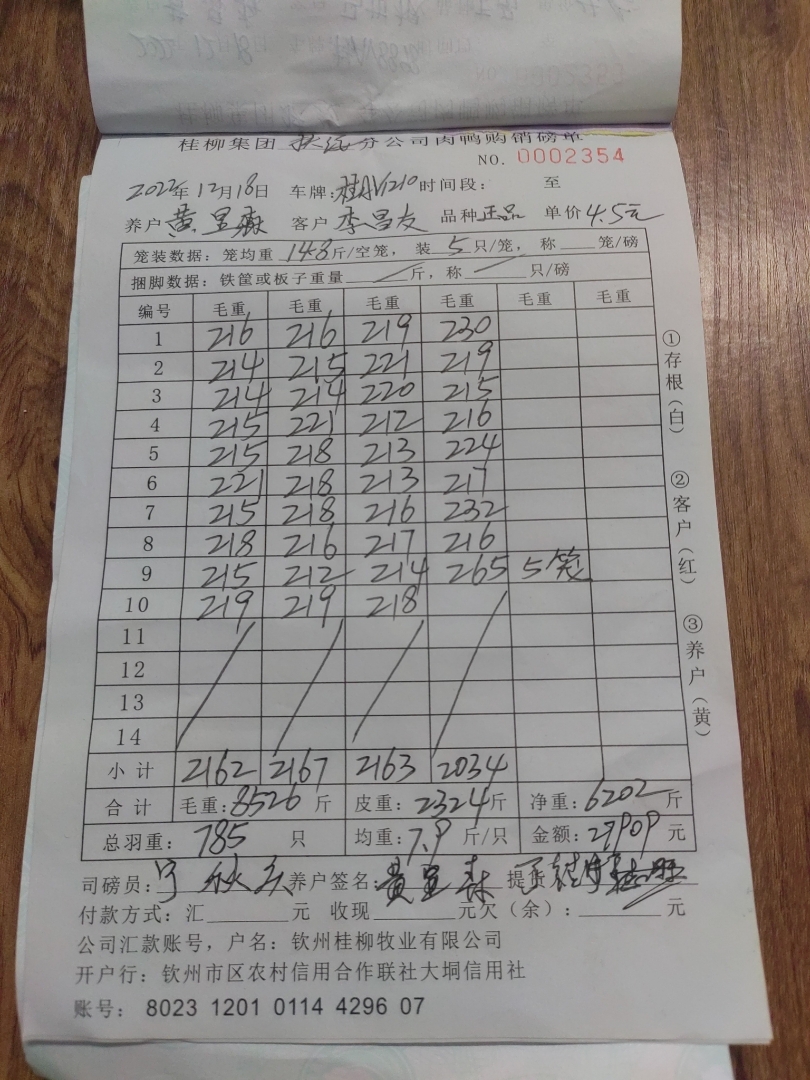 桂柳集团 扶绥 分公司肉鸭购销磅单
NO. 0002354
2022年12月18日 车牌: 时间段: 至
养户 黄呈森 客户 李昌友 品种 正品 单价 4.5元
笼装数据: 笼均重 14.8 斤/空笼, 装 5 只/笼, 称 笼/磅
捆脚数据: 铁筐或板子重量 斤, 称 只/磅
编号 毛重 毛重 毛重 毛重 毛重 毛重
1 216 216 219 230
2 214 215 221 219
3 214 214 220 215
4 215 221 212 216
5 215 218 213 224
6 221 218 213 217
7 215 218 216 232
8 218 216 217 216
9 215 212 214 265 5笼
10 219 219 218
11
12
13
14
小计 2162 2167 2163 2034
合计 毛重: 8526 斤 皮重: 2324 斤 净重: 6202 斤
总羽重: 785 只 均重: 7.9 斤/只 金额: 27909 元
司磅员: 养户签名: 黄呈森 提货
付款方式: 汇 元 收现 元欠(余): 元
公司汇款账号, 户名: 钦州桂柳牧业有限公司
开户行: 钦州市区农村信用合作联社大垌信用社
账号: 8023 1201 0114 4296 07
①存根(白)
②客户(红)
③养户(黄)